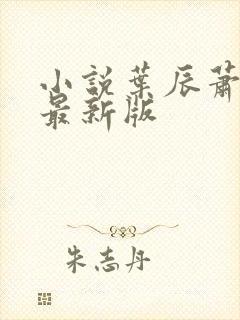 小說葉辰蕭
最新版
朱志丹